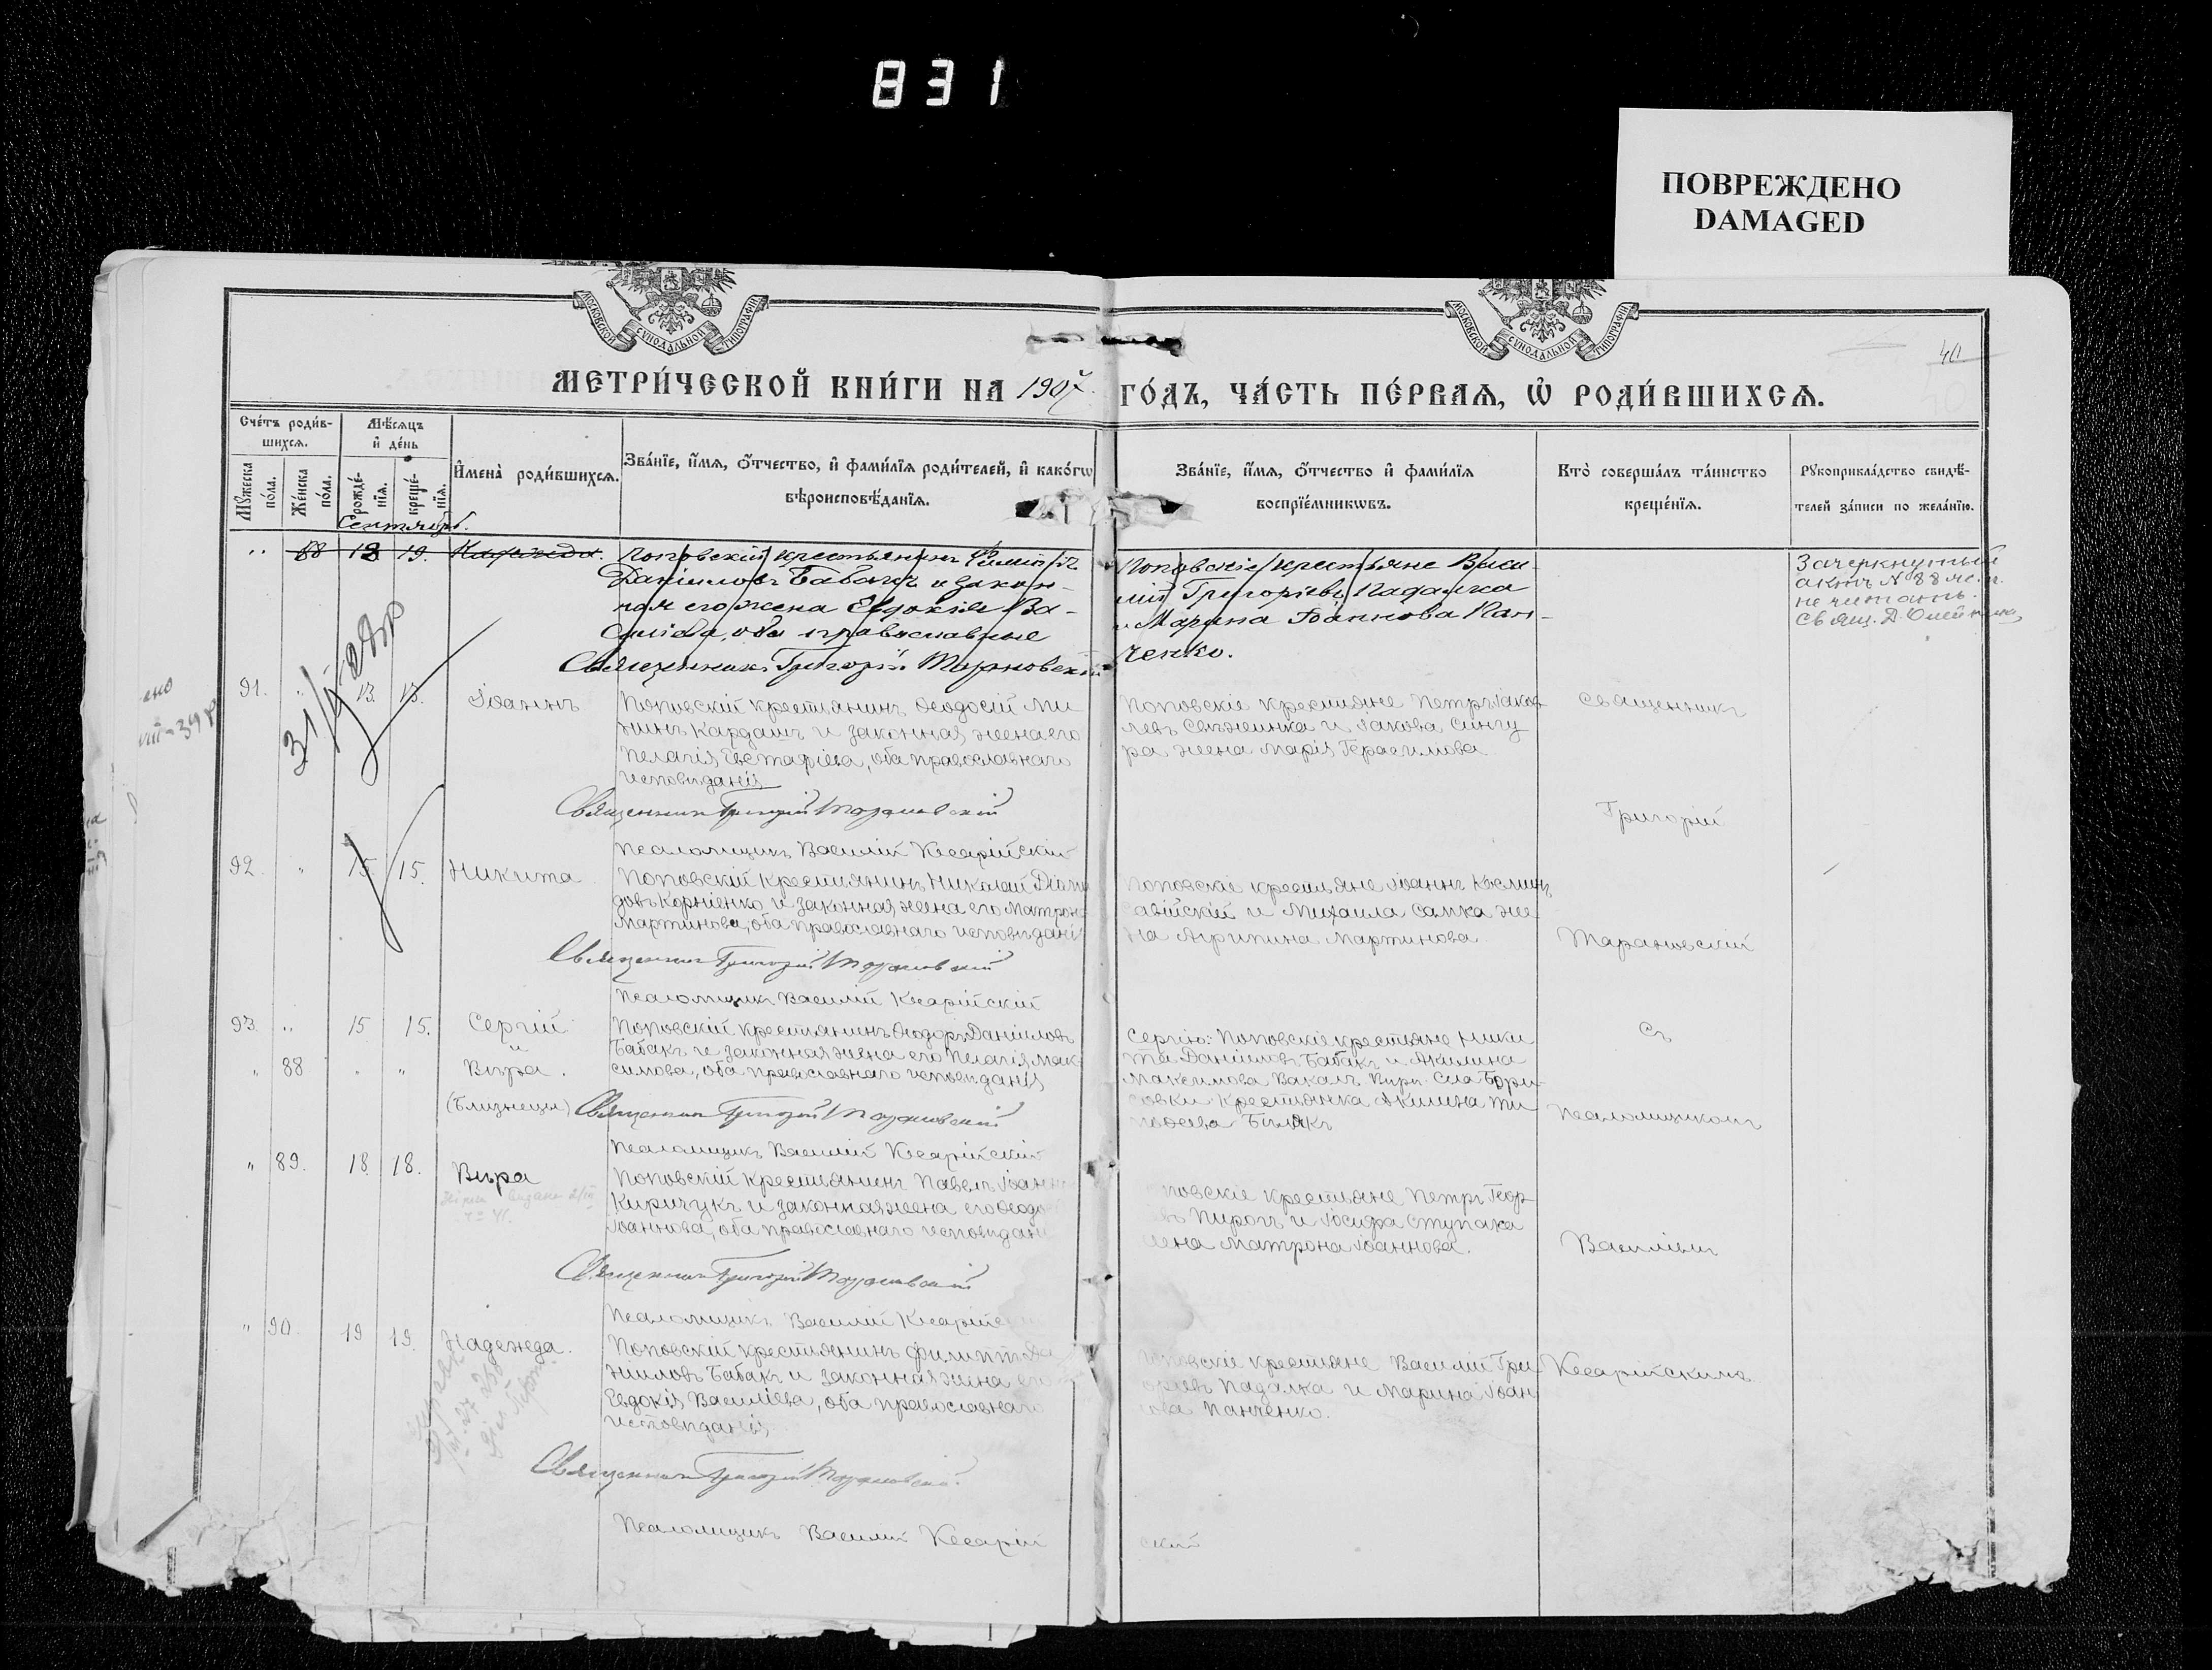 831
ПОВРЕЖДЕНО
DAMAGED
МОСКОВСКОЙ СУНОДАЛЬНОЙ ТИПОГРАФІИ
МОСКОВСКОЙ СУНОДАЛЬНОЙ ТИПОГРАФІИ
40
МЕТРИ́ЧЕСКОЙ КНИ́ГИ НА 1907 ГО́ДЪ, ЧА́СТЬ ПЕ́РВАЯ, Ѿ РОДИ́ВШИХСЯ.
Сче́тъ роди́в-
шихся.
Мѣ́сяцъ
и҆ де́нь
Мꙋ́жеска
по́ла.
Же́нска
по́ла.
рожде́-
нїя.
креще́-
нїя.
И҆мена̀ роди́вшихся.
Зва́нїе, и҆́мя, ѻ҆́тчество, и҆ фами́лїя роди́телей, и҆ како́гѡ
вѣроисповѣ́данїя.
Зва́нїе, и҆́мя, ѻ҆́тчество и҆ фами́лїя
воспрїе́мникѡвъ.
Кто̀ соверша́лъ та́инство
креще́нїя.
Рꙋкоприкла́дство свидѣ́-
телей за́писи по жела́нїю.
Сентябрь.
88 18 19. Надежда.
Поповскій крестьянинъ Филиппъ
Даніиловъ Бабакъ и закон-
ная его жена Евдокія Ва-
силіева, оба православные
Священникъ Григорій Тарановскій
Поповскіе крестьяне Васи-
лій Григоріевъ Падалка
и Марина Іоаннова Пан-
ченко.
Зачеркнутый
актъ № 88 ж. п.
не читать.
Свящ.
31/V
91. 13. 13. Іоаннъ
Поповскій крестьянинъ Ѳеодосій Ми
нинъ Кардашъ и законная жена его
Пелагія Евстафіева, оба православнаго
исповѣданія
Священникъ Григорій Тарановскій
Псаломщикъ Василій Кесарійскій
Поповскіе крестьяне Петръ Іаков
левъ Свѣжинка и Іакова Сингу
ра жена Марія Герасимова
Священникъ
Григорій
92. 15 15. Никита
Поповскій крестьянинъ Николай
довъ Корніенко и законная жена его Матрона
Мартинова, оба православнаго исповѣданія
Священникъ Григорій Тарановскій
Псаломщикъ Василій Кесарійскій
Поповскіе крестьяне Іоаннъ
и Михаила Самка же
на Агрипина Мартинова
Тарановскій
93. 15 15. Сергій
и
88 Вѣра.
(Близнецы)
Поповскій крестьянинъ Ѳеодоръ Даніиловъ
Бабакъ и законная жена его Пелагія Мак
симова, оба православнаго исповѣданія
Священникъ Григорій Тарановскій
Псаломщикъ Василій Кесарійскій
Сергію: Поповскіе крестьяне Ники
та Даніиловъ Бабакъ и Акилина
Максимова Вакалъ Вѣрѣ: Села Бори
совки крестьянка Акилина Ти
моѳеева
съ
Псаломщикомъ
89. 18 18. Вѣра
Поповскій крестьянинъ Павелъ Іоанн
Киричукъ и законная жена его
Іоаннова, оба православнаго исповѣдані
Священникъ Григорій Тарановскій
Псаломщикъ Василій Кесарійс
повскіе крестьяне Петръ Геор
въ Пирогъ и Іосифа Ступака
жена Матрона Іоаннова.
Василіемъ
90. 19 19. Надежда.
Поповскій крестьянинъ Филиппъ Да
ніиловъ Бабакъ и законная жена его
Евдокія Василіева, оба православнаго
исповѣданія
Священникъ Григорій Тарановскій
Псаломщикъ Василій Кесарій
скій
повскіе крестьяне Василій Гри
оріевъ Падалка и Марина Іоан
ова Панченко.
Кесарійскимъ